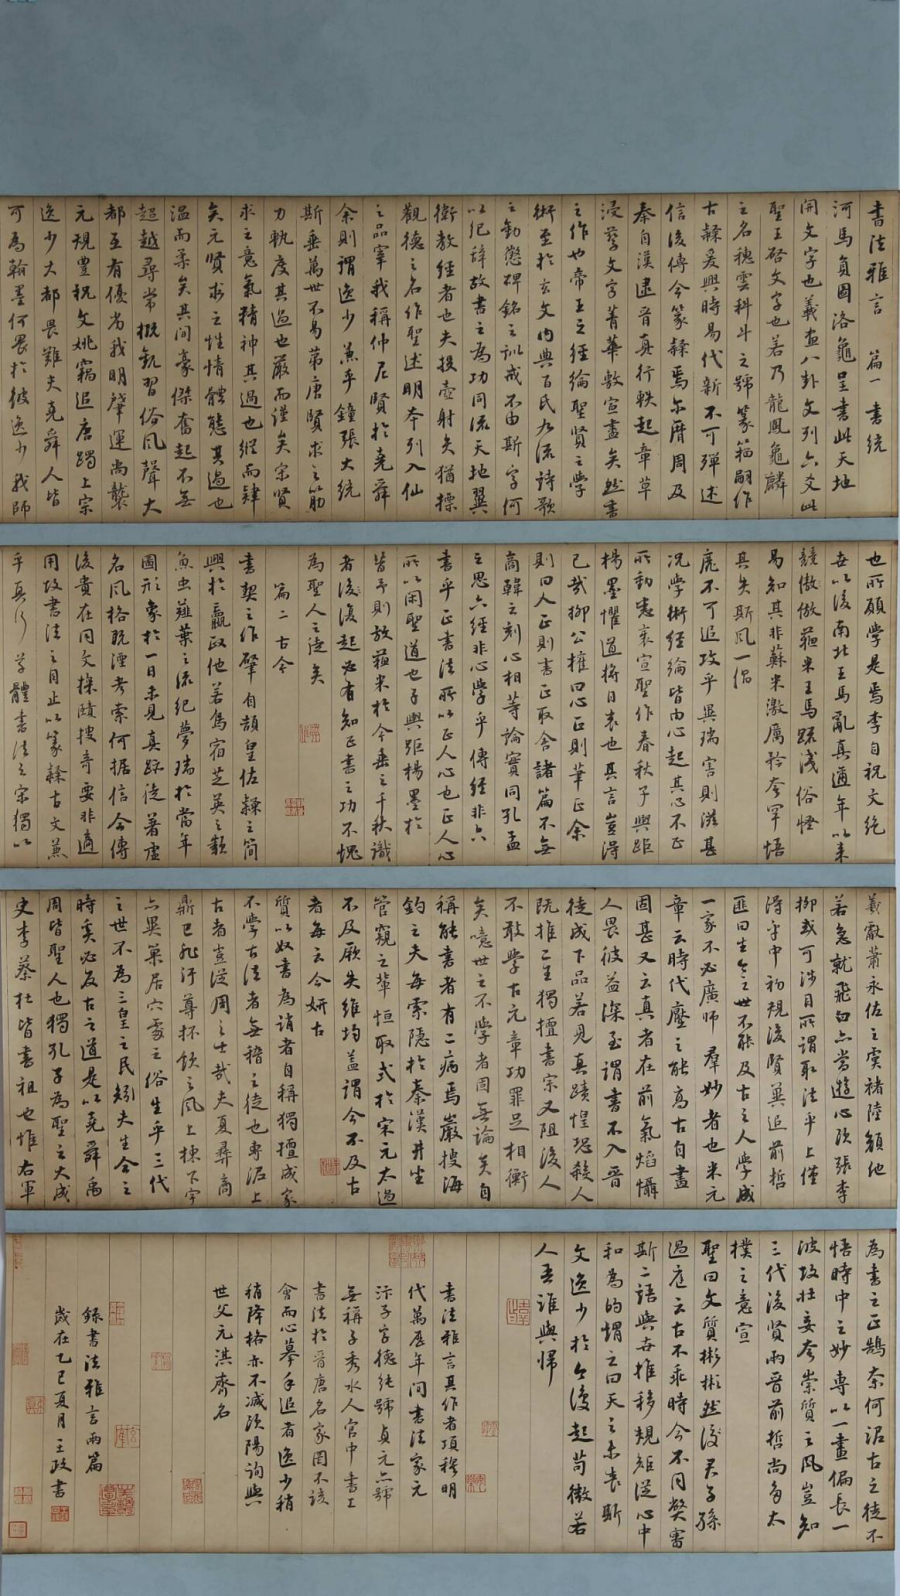 書法雅言　篇一　書統
河馬負圖洛龜呈書此天地
開文字也羲畫八卦文列六爻此
聖王啓文字也若乃龍鳳龜麟
之名穗雲科斗之號篆籀嗣作
古隸爰興時易代新不可殫述
信後傳今篆隸焉尔厝周及
秦自漢逮晉真行迭起章草
浸孳文字菁華敷宣盡矣然書
之作也帝王之經綸聖賢之學
術至於玄文內典百氏九流詩歌
之勸懲碑銘之訓戒不由斯字何
以紀辭故書之為功同流天地翼
衛教經者也夫投壺射矢猶標
觀德之名作聖述明本列入仙
之品宰我稱仲尼賢於堯舜
余則謂逸少兼乎鍾張大統
斯垂萬世不易第唐賢求之筋
力軌度其過也嚴而謹矣宋賢
求之意氣精神其過也縱而肆
矣元賢求之性情體態其過也
溫而柔矣其間豪傑奮起不無
超越尋常概觀習俗風聲大
都互有優劣我明肇運尚襲
元規豐祝文姚竊追唐躅上宗
逸少大都畏難夫堯舜人皆
可為翰墨何畏於彼逸少我師
也所願學是焉李自祝文絕
世以後南北王馬亂真邇年以來
競倣倣蘇米王馬疎淺俗怪
易知其非蘇米激厲矜夸罕悟
其失斯風一倡
靡不可追攷乎異瑞害則滋甚
況學術經綸皆由心起其心不正
所動悉衺宣聖作春秋子輿距
楊墨懼道將日衰也其言豈得
已哉柳公權曰心正則筆正余
則曰人正則書正取舍諸篇不無
商韓之刻心相等論實同孔孟
之思六經非心學乎傳經非六
書乎正書法所以正人心也正人心
所以閑聖道也子輿距楊墨於
昔予則放蘇米於今垂之千秋識
者復復起必有知正書之功不愧
為聖人之徒矣
篇二　古今
書契之作肇自頡皇佐隸之簡
興於嬴政他若鳥宿芝英之類
魚虫薤葉之流紀夢瑞於當年
圖形象於一日未見真跡徒著虛
名風格既湮考索何據信今傳
後貴在同文探賾搜奇要非適
用攷書法之目止以篆隸古文兼
乎真行草體書法之宗獨以
羲獻蕭永佐之虞褚陸顏他
若急就飛白亦當遊心歐張李
柳或可涉目所謂取法乎上僅
得乎中初規後賢冀追前哲
匪曰生今之世不能及古之人學成
一家不必廣師　群妙者也米元
章云時代壓之能高古自盡
固甚又云真者在前氣焰懾
人畏彼益深至謂書不入晉
徒成下品若見真蹟惶恐殺人
既推二王獨擅書宗又阻後人
不敢學古元章功罪足相衡
矣噫世之不學者固無論矣自
稱能書者有二病焉巖搜海
釣之夫每索隱於秦漢井坐
管窺之輩恒取式於宋元太過
不及厥失維均蓋謂今不及古
者每云今妍古
質以奴書為誚者自稱獨擅成家
不學古法者無稽之徒也專泥上
古者豈從周之士哉夫夏彝商
鼎已非汙尊抔飲之風上棟下宇
亦異巢居穴處之俗生乎三代
之世不為三皇之民矧夫生今之
時奚必反古之道是以堯舜禹
周皆聖人也獨孔子為聖之大成
史李蔡杜皆書祖也惟右軍
為書之正鵠奈何泥古之徒不
悟時中之妙專以一畫偏長一
波攷杜妄夸崇質之風豈知
三代後賢兩晉前哲尚多太
樸之意宣
聖曰文質彬彬然後君子孫
過庭云古不乖時今不同弊審
斯二語與世推移規矩從心中
和為的謂之曰天之未喪斯
文逸少於今復起苟微若
人吾誰與歸
書法雅言其作者項穆明
代萬曆年間書法家元
汴子字德純號貞元亦號
無稱子秀水人官中書工
書法於晉唐名家罔不該
會而心摹手追者逸少稍
稍降格亦不減歐陽詢與
世父元淇齊名
錄書法雅言兩篇
歲在乙巳夏月　王政書